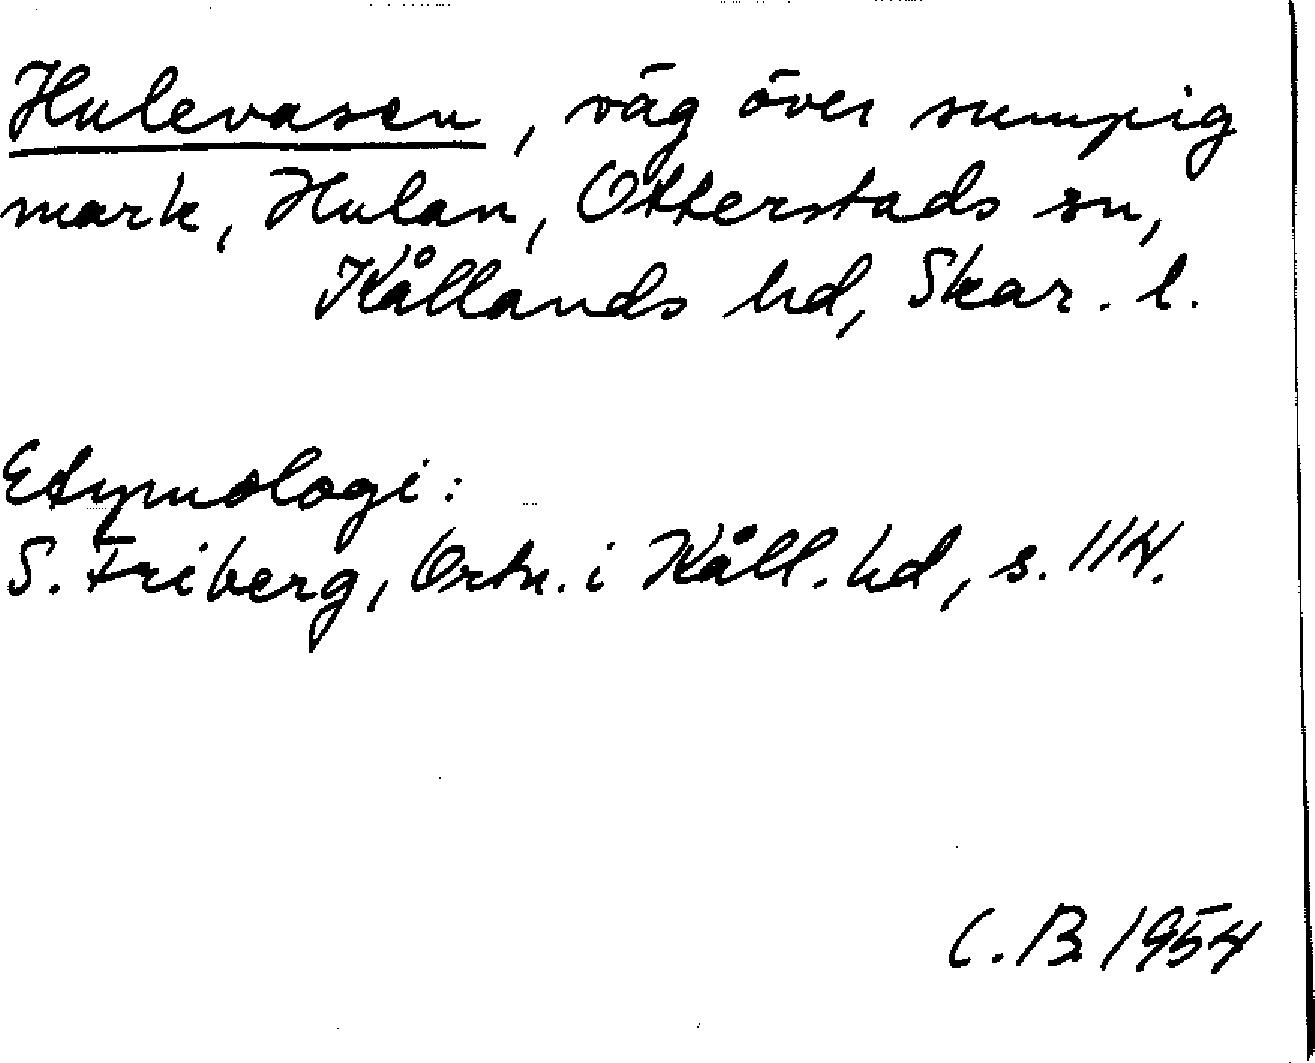 Hulevasen, väg över sumpig
mark, Hulan, Otterstads sn,
Kållands hd, Skar. l.
Etymologi:
S. Friberg, Ortn. i Kåll. hd, s. 114.
C. B. 1954